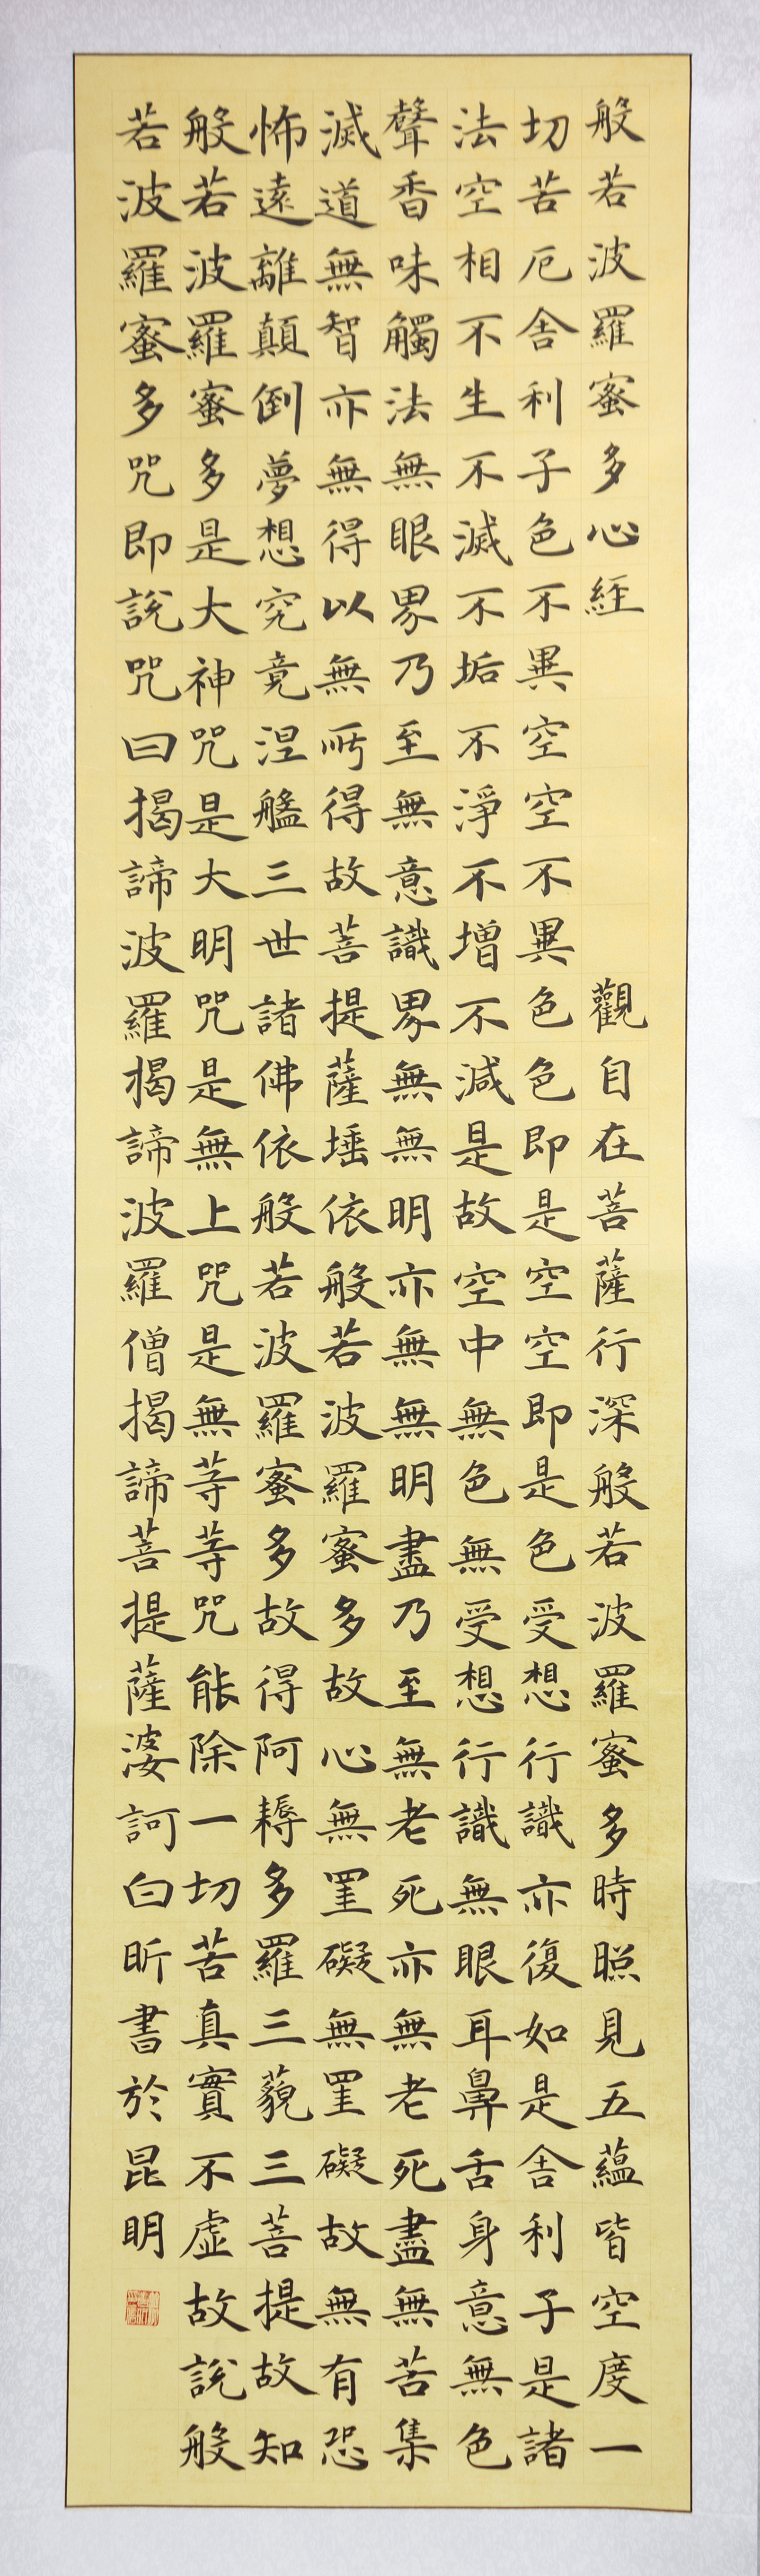 般若波羅蜜多心経 觀自在菩薩行深般若波羅蜜多時照見五蘊皆空度一
切苦厄舎利子色不異空空不異色色即是空空即是色受想行識亦復如是舎利子是諸
法空相不生不滅不垢不淨不增不減是故空中無色無受想行識無眼耳鼻舌身意無色
聲香味觸法無眼界乃至無意識界無無明亦無無明盡乃至無老死亦無老死盡無苦集
滅道無智亦無得以無所得故菩提薩埵依般若波羅蜜多故心無罣礙無罣礙故無有恐
怖遠離顛倒夢想究竟涅槃三世諸佛依般若波羅蜜多故得阿耨多羅三藐三菩提故知
般若波羅蜜多是大神咒是大明咒是無上咒是無等等咒能除一切苦真實不虛故說般
若波羅蜜多咒即說咒曰揭諦波羅揭諦波羅僧揭諦菩提薩婆訶白昕書於昆明